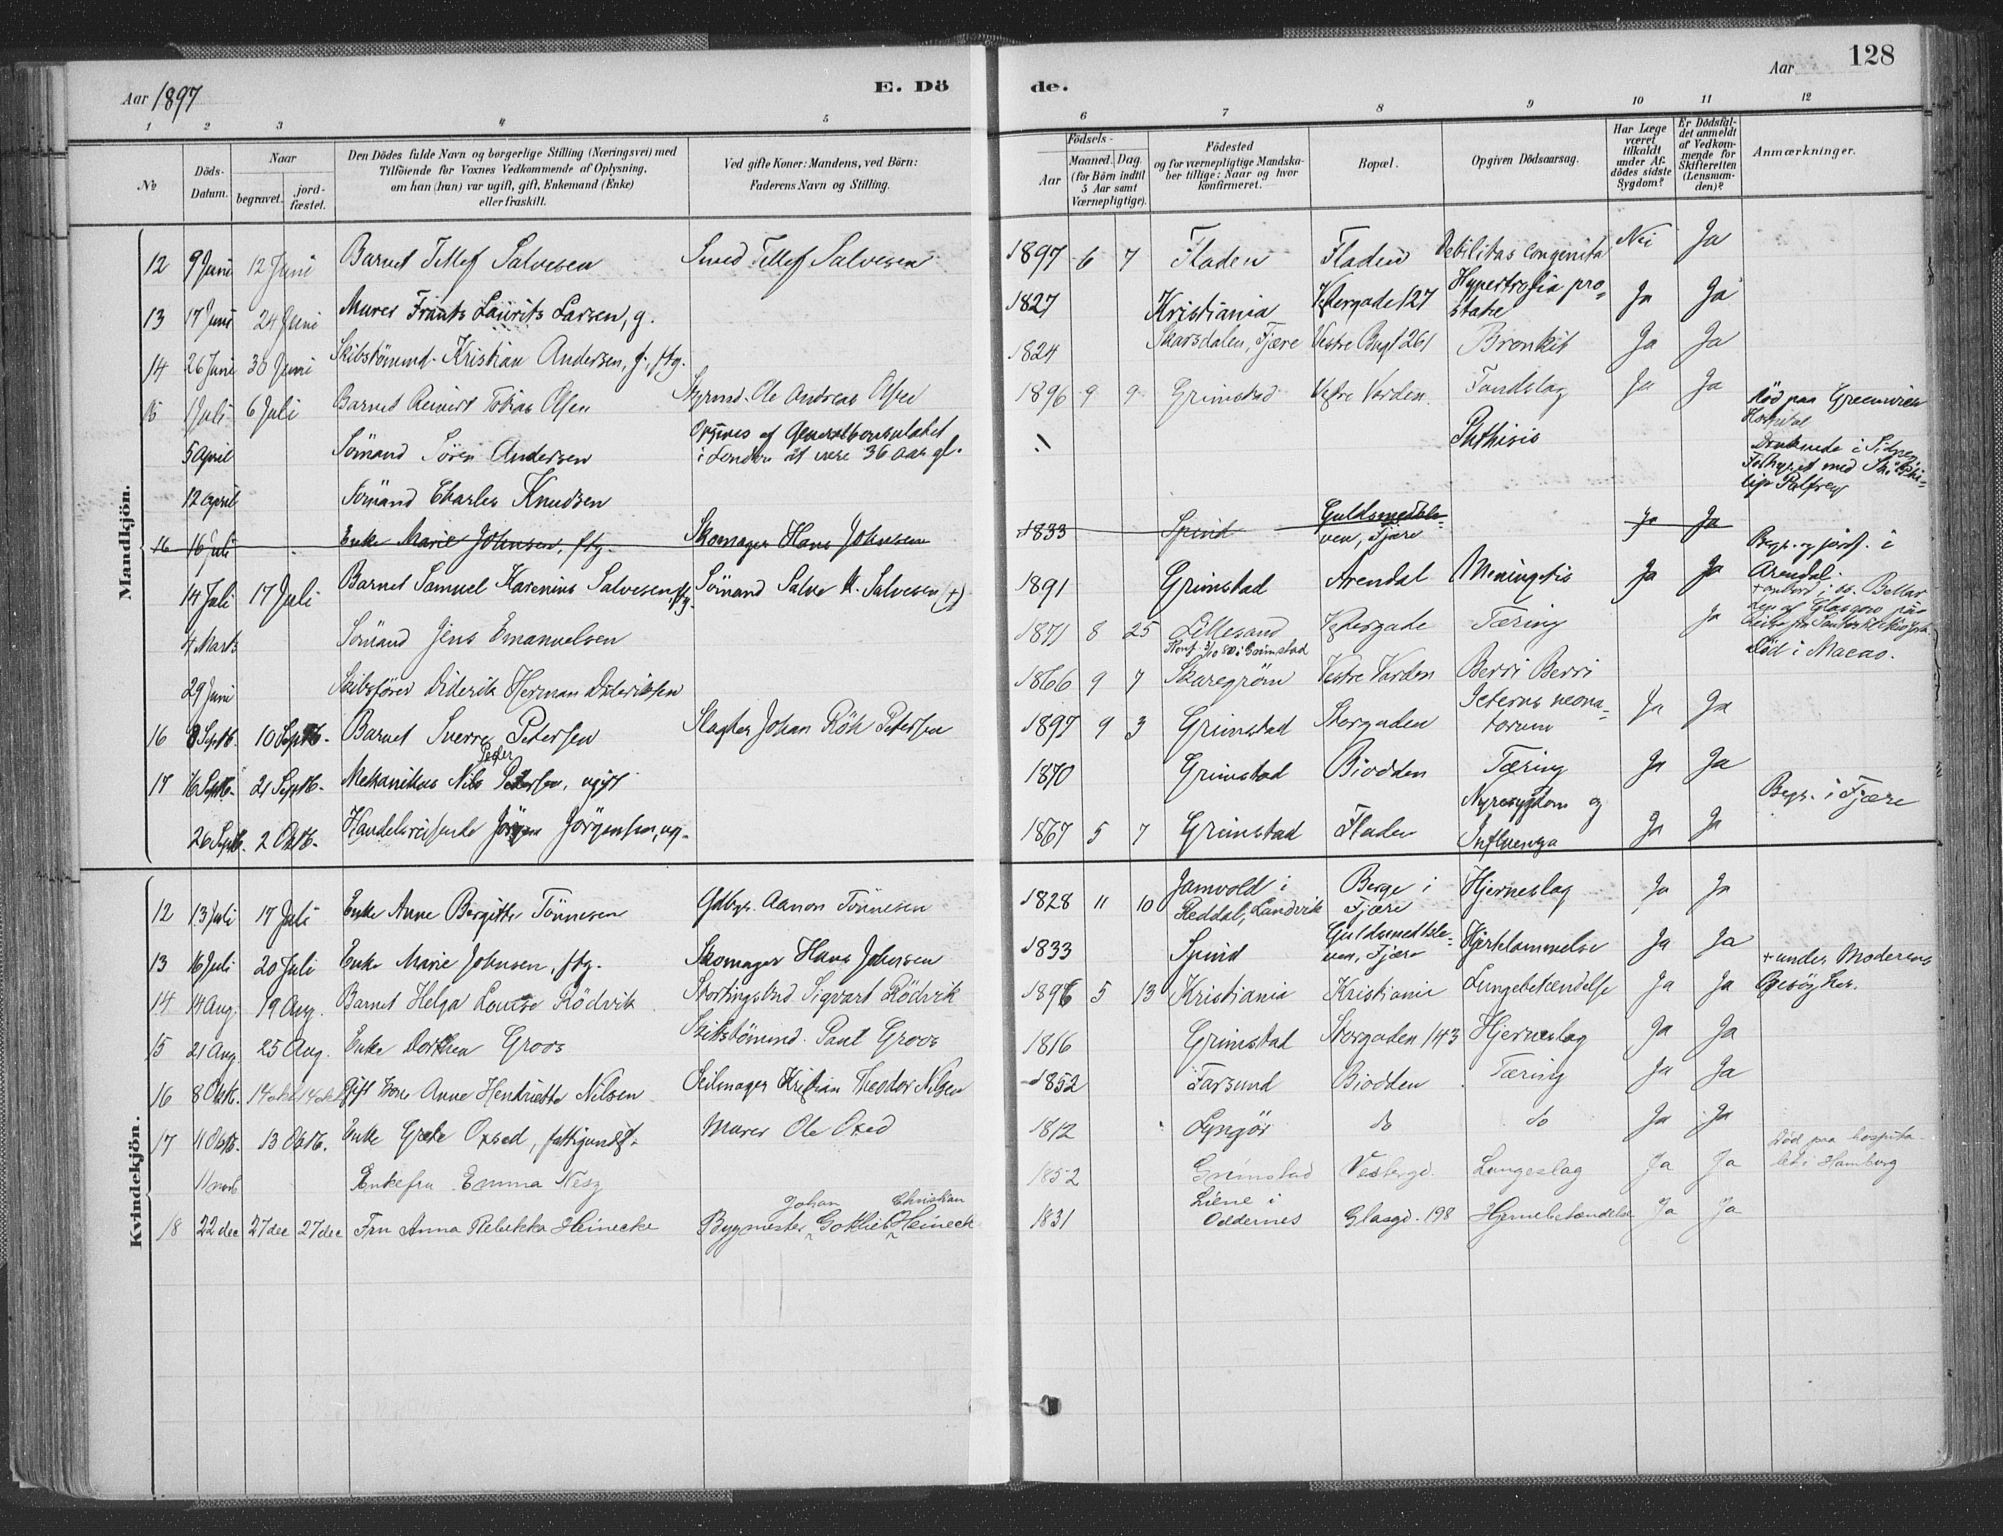 Aar 1897 E. Dö
de. Aar 128
1 2 3 4 5
6 7 8 9 10 11 12
№ Döds-Datum. Naar begravet. jordfæstet. Den Dödes fulde Navn og borgerlige Stilling (Næringsvei) med Tilföiende for Voxnes Vedkommende af Oplysning, om han (hun) var ugift, gift, Enkemand (Enke) eller fraskilt. Ved gifte Koner: Mandens, ved Börn: Faderens Navn og Stilling.
Födsels- Aar Maaned. Dag. (for Börn indtil 5 Aar samt Værnepligtige). Födested og for værnepligtige Mandskaber tillige: Naar og hvor konfirmeret. Bopæl. Opgiven Dödsaarsag. Har Læge været tilkaldt under Afdödes sidste Sygdom? Er Dödsfaldet anmeldt af Vedkommende for Skifteretten (Lensmanden)? Anmærkninger.
Mandkjön.
12 9 Juni 12 Juni Barnet Tellef Salvesen Smed Tellef Salvesen 1897 6 7 Fladen Fladen Debilitas congenita Nei Ja
13 17 Juni 24 Juni Murer Frants Laurits Larsen, g. 1827 Kristiania Vestergade 127 Hypertrofia prostatæ Ja Ja
14 26 Juni 30 Juni Skibstømmd. Kristian Andersen, g., ftg. 1824 Skarsdalen, Fjære Vestre Bugt 261 Bronkit Ja Ja
15 1 Juli 6 Juli Barnet Reinert Tobias Olsen Styrmd. Ole Andreas Olsen 1896 9 9 Grimstad Vestre Varden Tandslag Ja Ja
5 April Sømand Sören Andersen Opgives af Generalkonsulatet i London at være 36 Aar gl. Phthisis Död paa Greenwich Hospital
12 April Sømand Charles Knudsen Druknede i Sidney.
16 16 Juli Enke Marie Johnsen, ftg. Skomager Hans Johnsen 1833 Spind Guldsmedkleven, Fjære Ja Ja
14 Juli 17 Juli Barnet Samuel Karenius Salvesen, ftg. Sømand Salve K. Salvesen (+) 1891 Grimstad Arendal Meningitis Ja Ja Begr. og jordf. i Arendal.
4 Marts Sømand Jens Emanuelsen 1871 8 25 Lillesand Vestergade Tæring Ja
29 Juni Skibsfører Diderik Herman Dideriksen 1866 9 7 Skaregrøm Vestre Varden Berri Berri Död i Macao.
16 8 Septb. 10 Septb. Barnet Sverre Petersen Slagter Johan Röh Petersen 1897 9 3 Grimstad Storgaden Icterus neonatorum Ja Ja
17 16 Septb. 21 Septb. Mekanikus Nils Peder Petersen, ugift 1870 Grimstad Biodden Tæring Ja Ja
26 Septb. 2 Oktb. Handelsreisende Jörgen Jörgensen, ug. 1867 5 7 Grimstad Fladen Nyresygdom og Influenza Ja Ja Begr. i Fjære
Kvindekjön.
12 13 Juli 17 Juli Enke Anne Bergitte Tönnesen Gdbgr. Aanon Tönnesen 1828 11 10 Jamvold i Reddal, Landvik Berge i Fjære Hjerneslag Ja Ja
13 16 Juli 20 Juli Enke Marie Johnsen, ftg. Skomager Hans Johnsen 1833 Spind Guldsmedkleven, Fjære Hjertelammelse Ja Ja
14 14 Aug. 19 Aug. Barnet Helga Louise Rödvik Stortingsbud Sigvart Rödvik 1896 5 13 Kristiania Kristiania Lungebetændelse Ja Ja + under Moderens Besög her.
15 21 Aug. 25 Aug. Enke Dorthea Groos Skibstömmd. Paul Groos 1816 Grimstad Storgaden 143 Hjerneslag Ja Ja
16 8 Oktb. 14 okt 14 okt Gift Kone Anne Henriette Nilsen Seilmager Kristian Theodor Nilsen 1852 Farsund Biodden Tæring Ja Ja
17 11 Oktb. 13 Oktb. Enke Grete Oxed, fattigundst. Murer Ole Oxed 1812 Lyngör do do Ja Ja
11 novb Enkefru Emma Nesz 1852 Grimstad Vestergd. Lungeslag Ja Ja Död paa hospitalet i Hamburg
18 22 dec 27 dec 27 dec Fru Anna Rebekka Heinecke Bygmester Johan Gotlieb Christian Heinecke 1831 Liene i Oddernes Glasgd. 198 Hjernebetændelse Ja Ja